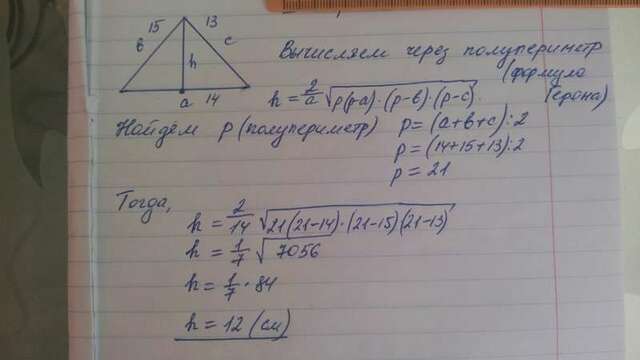 15 13
в h с
а 14
Вычисляем через полупериметр
(формула Герона)
h = 2/a √p(p-a)·(p-в)·(p-c)
Найдём p (полупериметр) p=(a+в+c):2
p=(14+15+13):2
p = 21
Тогда,
h = 2/14 √21(21-14)·(21-15)(21-13)
h = 1/7 √7056
h = 1/7 · 84
h = 12 (см)